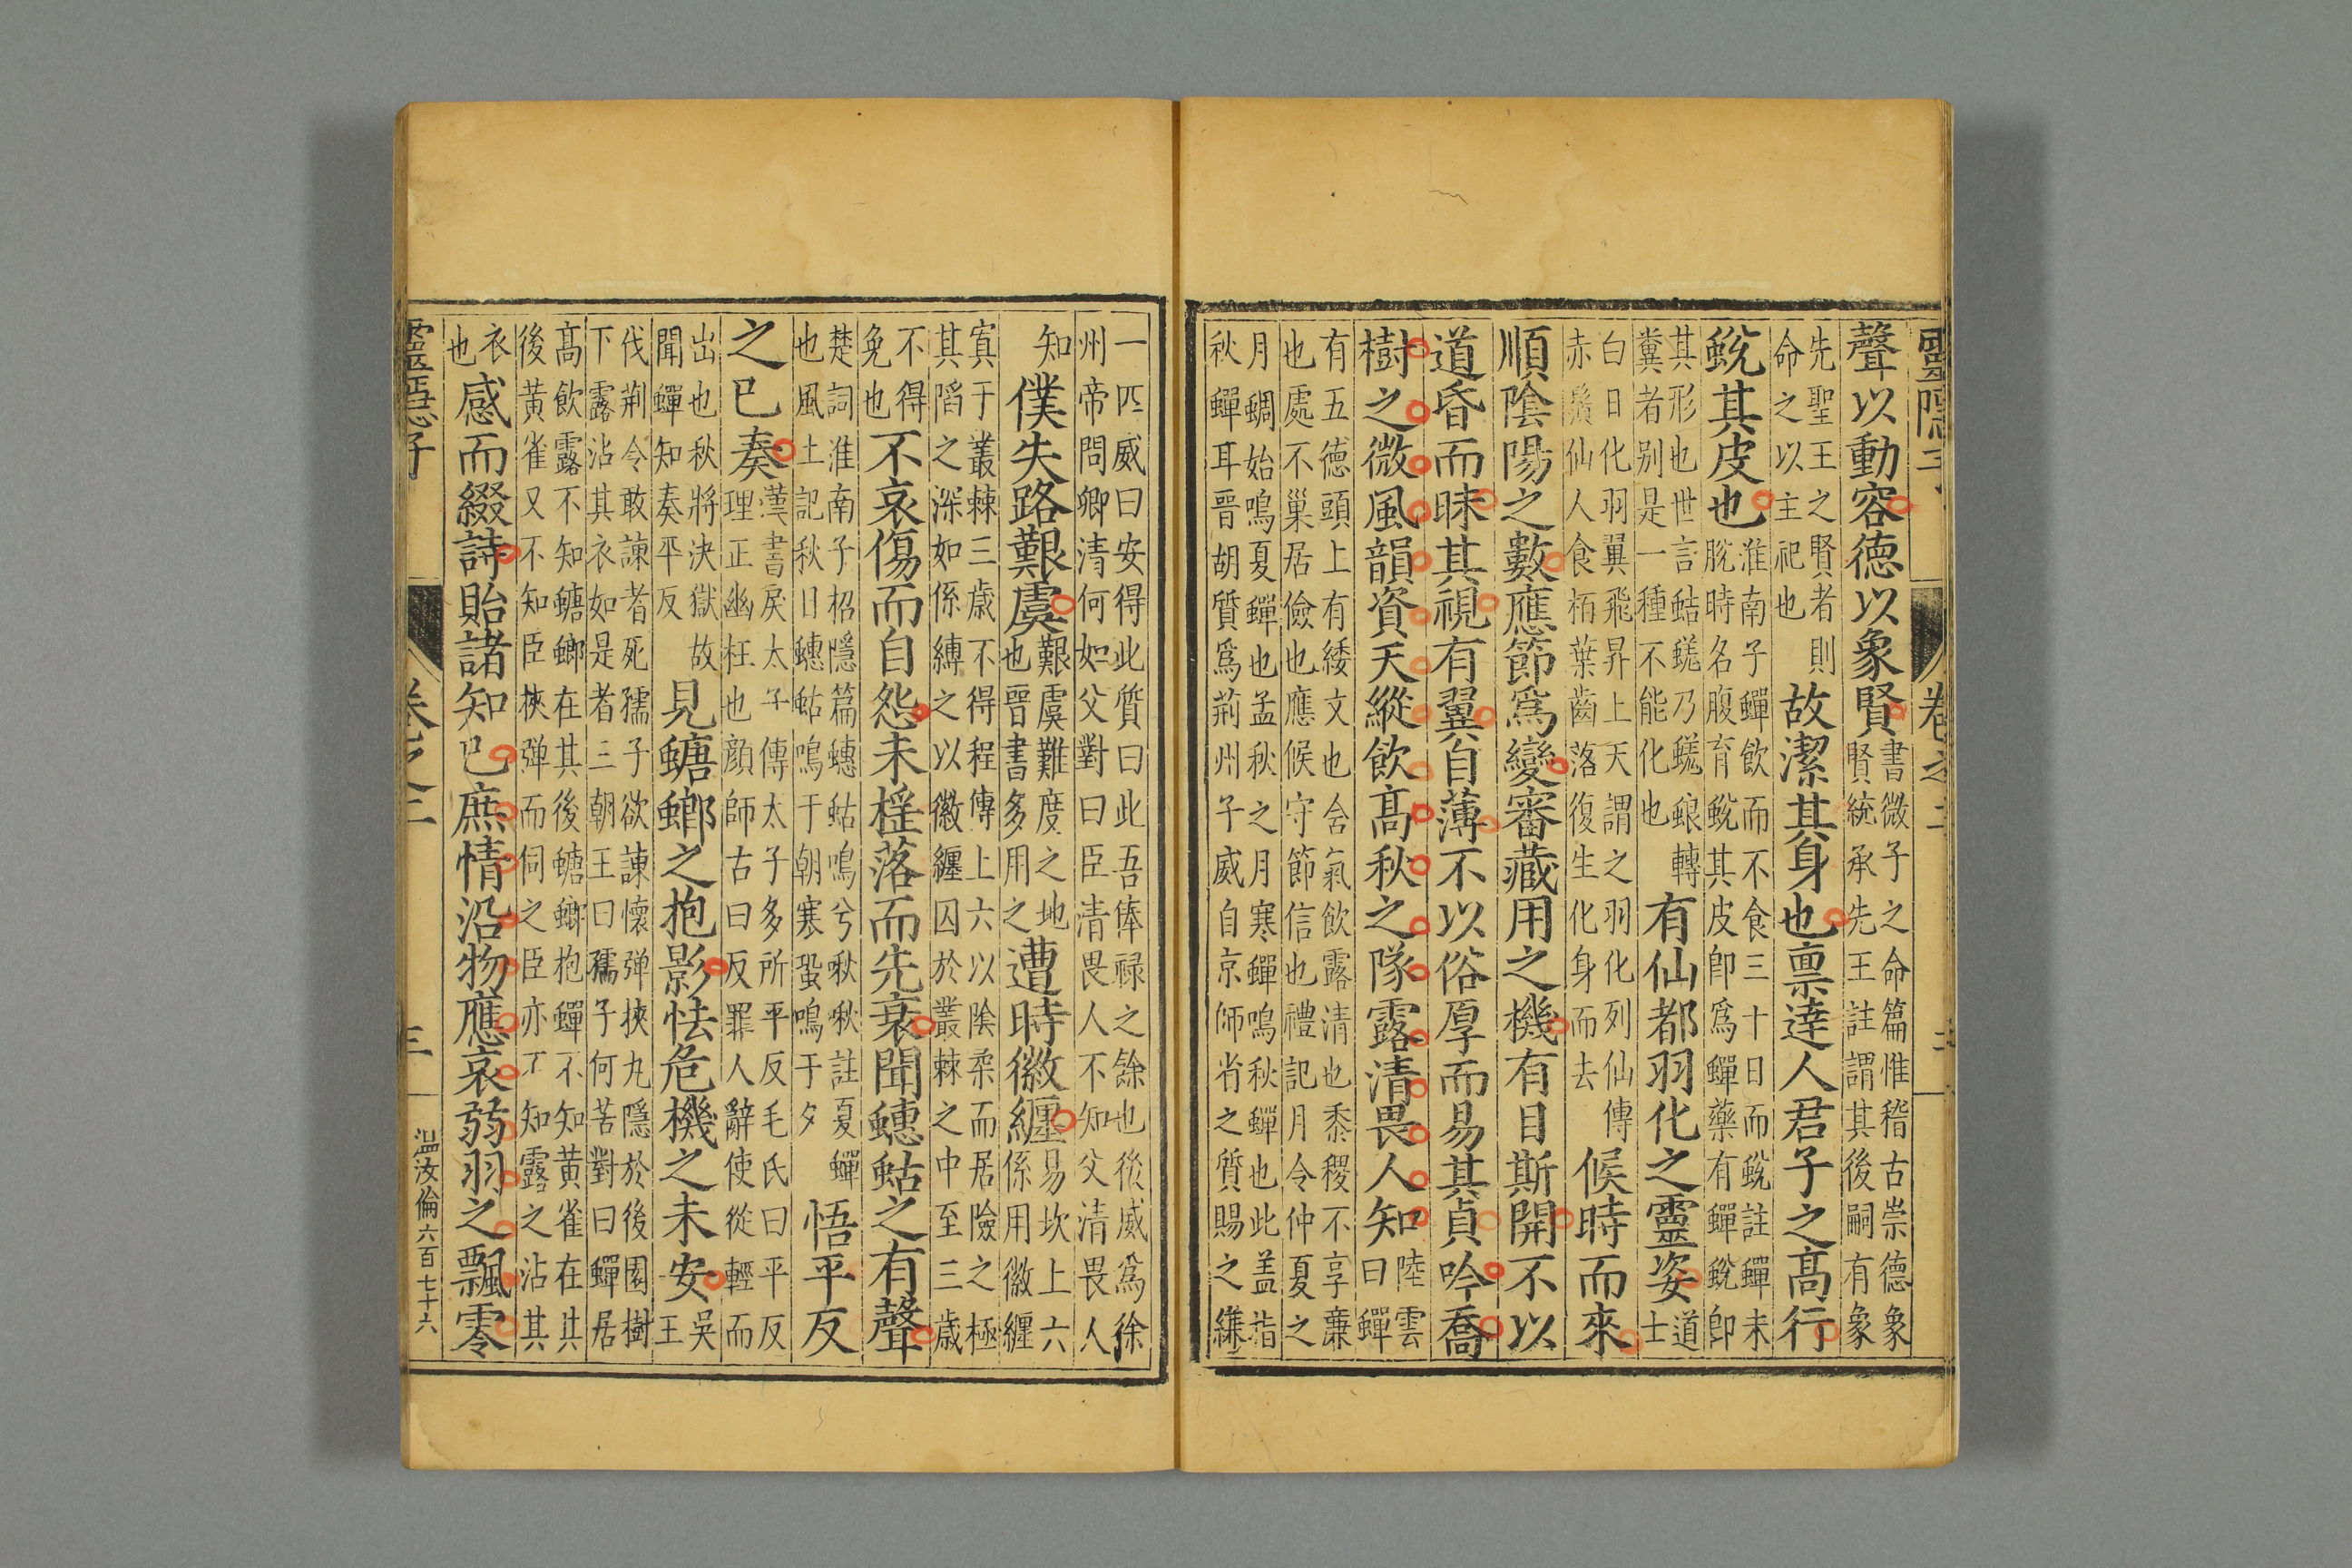 靈隱子 卷之二 三
聲以動容德以象賢書微子之命篇惟稽古崇德象
賢統承先王註謂其後嗣有象
先聖王之賢者則
命之以主祀也故潔其身也禀達人君子之高行
蛻其皮也淮南子蟬飲而不食三十日而蛻註蟬未
脫時名腹育蛻其皮卽爲蟬藥有蟬蛻卽
其形也世言蛣蜣乃蜣蜋轉
糞者别是一種不能化也有仙都羽化之靈姿道
士
白日化羽翼飛昇上天謂之羽化列仙傳
赤鬚仙人食栢葉齒落復生化身而去候時而來
順陰陽之數應節爲變審藏用之機有目斯開不以
道昏而昧其視有翼自薄不以俗厚而易其貞吟喬
樹之微風韻資天縱飲高秋之隊露清畏人知陸雲
曰蟬
有五德頭上有緌文也含氣飲露清也黍稷不享亷
也處不巢居儉也應候守節信也禮記月令仲夏之
月蜩始鳴夏蟬也孟秋之月寒蟬鳴秋蟬也此盖指
秋蟬耳晉胡質爲荊州子威自京師省之質賜之縑
一匹威曰安得此質曰此吾俸禄之餘也後威爲徐
州帝問卿清何如父對曰臣清畏人不知父清畏人
知僕失路艱虞艱虞難度之地
也晉書多用之遭時徽纆易坎上六
係用徽纆
寘于叢棘三歲不得程傳上六以陰柔而居險之極
其䧟之深如係縛之以徽纆囚於叢棘之中至三歲
不得
免也不哀傷而自怨未揺落而先衰聞蟪蛄之有聲
楚詞淮南子招隱篇蟪蛄鳴兮啾啾註夏蟬
也風土記秋日蟪蛄鳴于朝寒蛩鳴于夕悟平反
之已奏漢書戾太子傳太子多所平反毛氏曰平反
理正幽枉也顔師古曰反罪人辭使從輕而
出也秋將決獄故
聞蟬知奏平反見螗螂之抱影怯危機之未安吳
王
伐荆令敢諫者死孺子欲諫懷弹挾丸隱於後園樹
下露沾其衣如是者三朝王曰孺子何苦對曰蟬居
高飲露不知螗螂在其後螗螂抱蟬不知黄雀在其
後黄雀又不知臣挾弹而伺之臣亦不知露之沾其
衣
也感而綴詩貽諸知已庶情沿物應哀弱羽之飄零
靈隱子 卷之二 三 温汝倫六百七十六